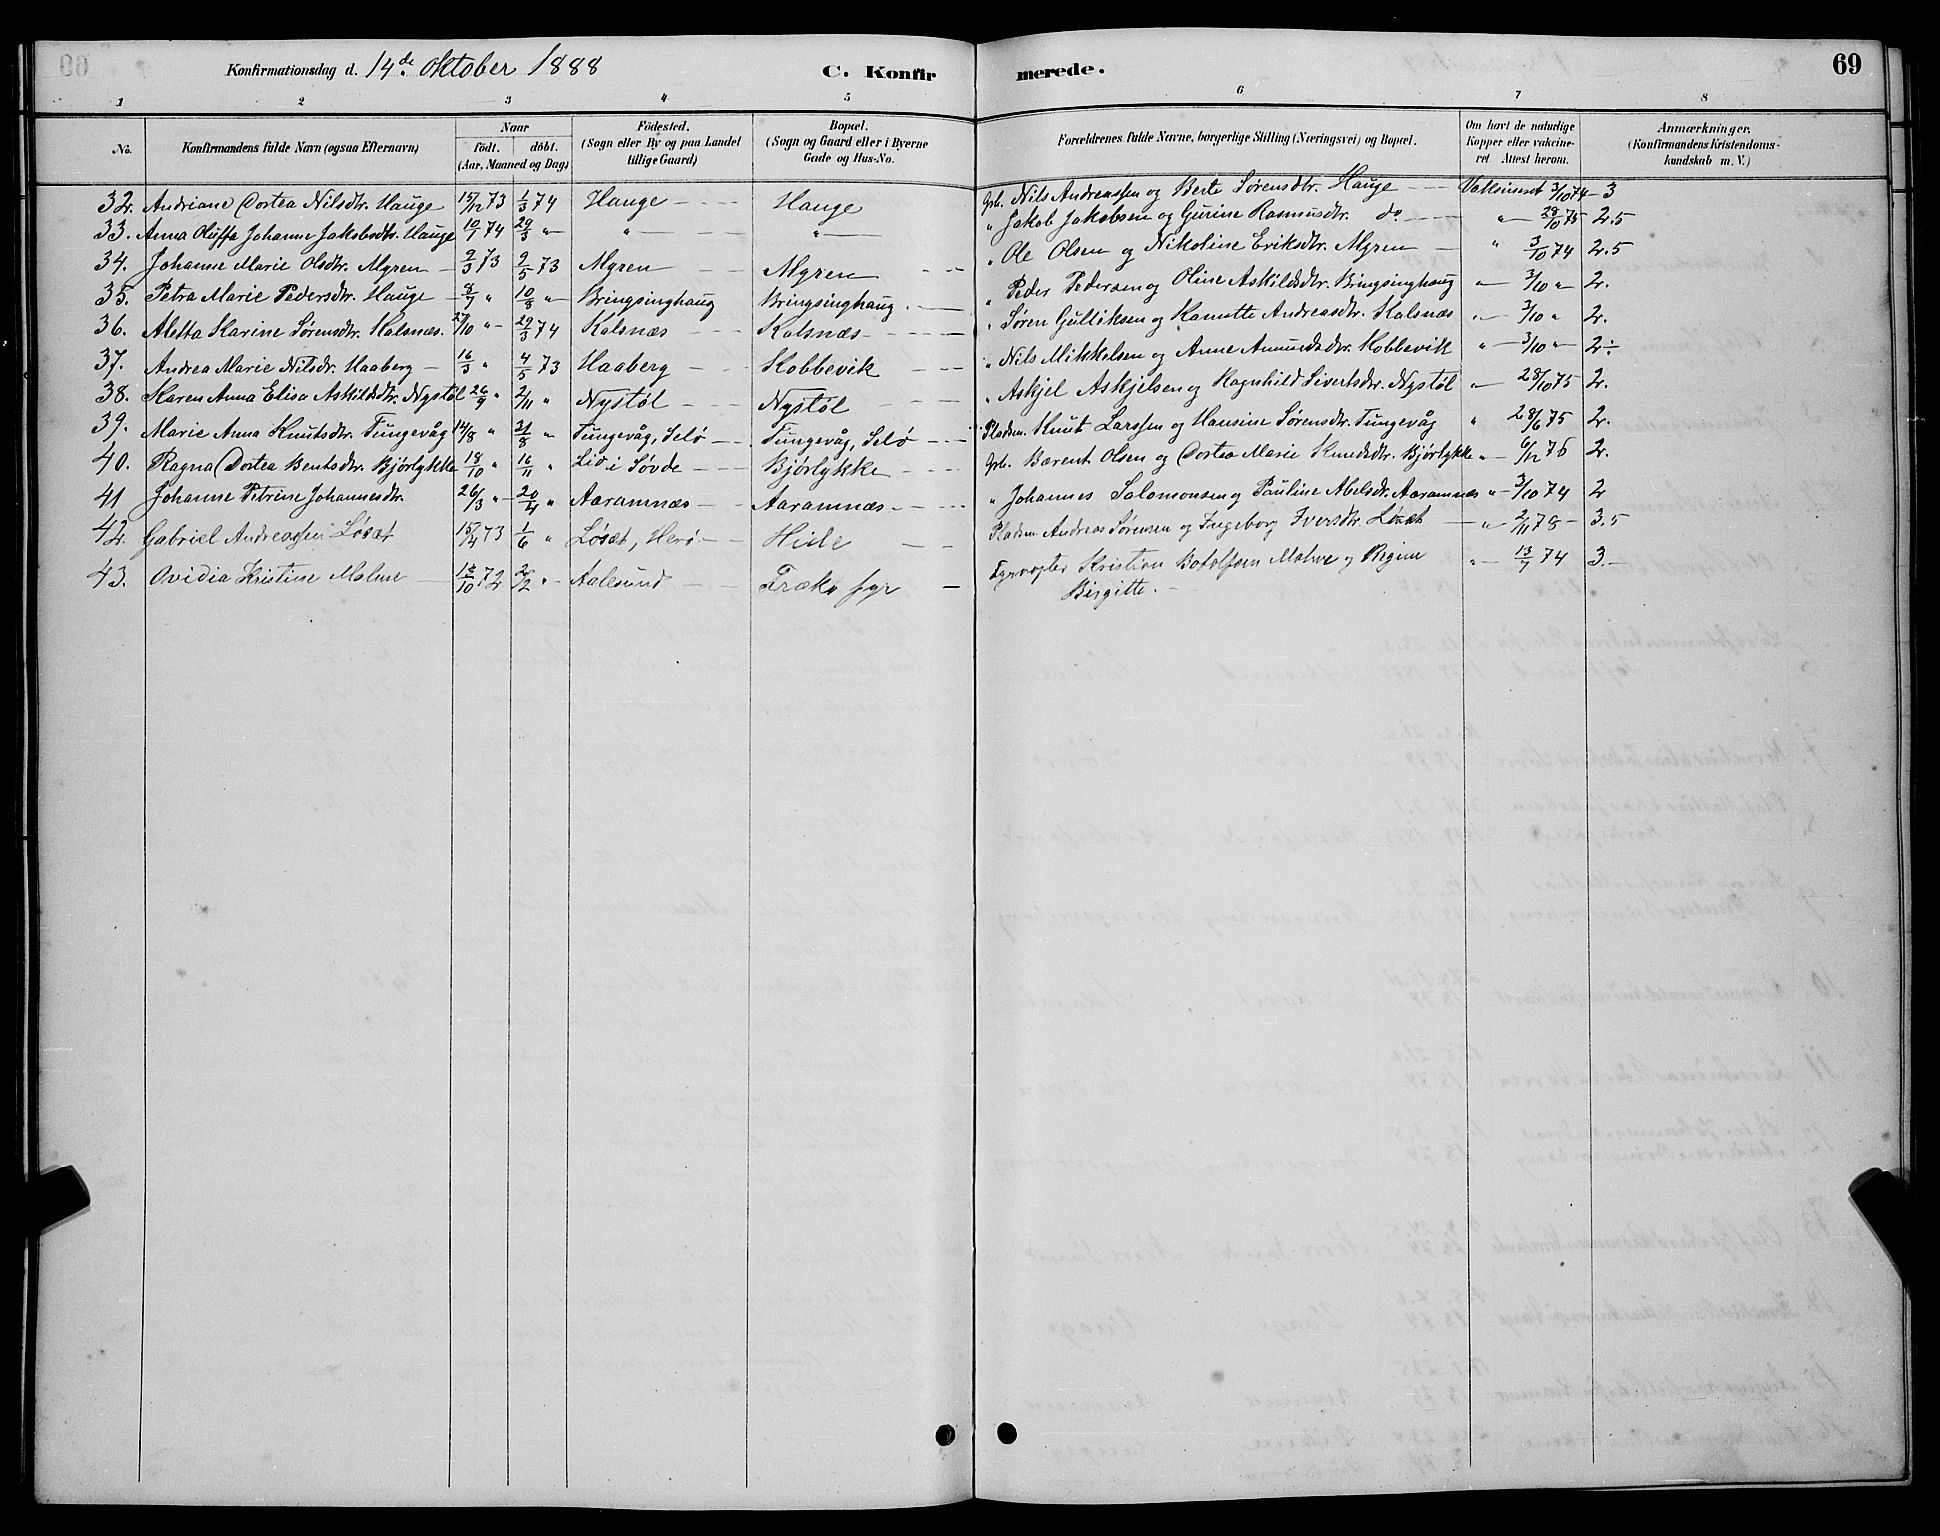 Konfirmationsdag d. 14de Oktober 1888 C. Konfirmerede. 69
1 2 3 4 5 6 7 8
No. Konfirmandens fulde Navn (ogsaa Efternavn) Naar födt. döbt. (Aar, Maaned og Dag) Födested. (Sogn eller By og paa Landet tillige Gaard) Bopæl. (Sogn og Gaard eller i Byerne Gade og Hus-No. Forældrenes fulde Navne, borgerlige Stilling (Næringsvei) og Bopæl. Om havt de naturlige Kopper eller vakcineret. Attest herom. Anmærkninger. (Konfirmandens Kristendomskundskab m. V.)
32. Andriane Dortea Nilsdtr. Hauge 15/12 73 1/3 74 Hauge Hauge Grb. Nils Andreassen og Berte Sørensdtr. Hauge Vaksineret 3/10 74 - 3
33. Anna Oluffa Johanne Jakobsdtr. Hauge 10/1 74 29/3 " " " " Jakob Jakobsen og Gurine Rasmusdtr. do " 28/10 75 2.5
34. Johanne Marie Olsdtr. Myren 2/3 73 2/5 73 Myren Myren " Ole Olsen og Nikoline Eriksdtr. Myren " 3/10 74 2.5
35. Petra Marie Pedersdtr. Hauge 8/7 " 10/8 " Bringsinghaug Bringsinghaug " Peder Pedersen og Oline Askildsdtr. Bringsinghaug " 3/10 " 2.
36. Aletta Karine Sørensdtr. Kalsnæs 27/10 " 29/3 74 Kalsnæs Kalsnæs " Søren Gulliksen og Kanutte Andreasdtr. Kalsnæs " 3/10 " 2.
37. Andrea Marie Nilsdr. Haaberg 16/3 " 4/5 73 Haaberg Kobbevik " Nils Mikkelsen og Anne Amundsdr. Kobbevik " 3/10 " 2÷
38. Karen Anna Elisa Askildsdtr. Nystøl 26/9 " 2/11 " Nystøl Nystøl " Askjel Askjelsen og Ragnhild Sivertsdtr. Nystøl " 28/10 75 2.
39. Marie Anna Knutsdtr. Tungevåg 14/8 " 31/8 " Tungevåg, Selø Tungevåg, Selø Pladsm. Knut Larssen og Hansine Sørensdtr. Tungevåg " 28/6 75 2.
40. Ragna Dortea Bentsdtr. Bjørlykke 18/10 " 16/11 " Lid i Søvde Bjørlykke Grb. Bærent Olsen og Dortea Marie Knudsdtr. Bjørlykke " 6/12 76 2.
41 Johanne Petrine Johannesdtr. 26/3 " 20/4 " Aaramnæs Aaramnæs " Johannes Salomonsen og Pauline Abelsdr. Aaramnæs " 3/10 74 2
42. Gabriel Andreassen Løsæt 15/4 73 1/6 " Løsæt, Herø Heide Pladsm Andreas Sørensen og Ingeborg Iversdtr. Løsæt " 2/11 78 3.5
43. Ovidia Kristine Malme 12/10 72 26/12 " Aalesund Fyrvogter Kristian Botolfsen Malme og Regine " 13/7 74 3.
Birgitte.